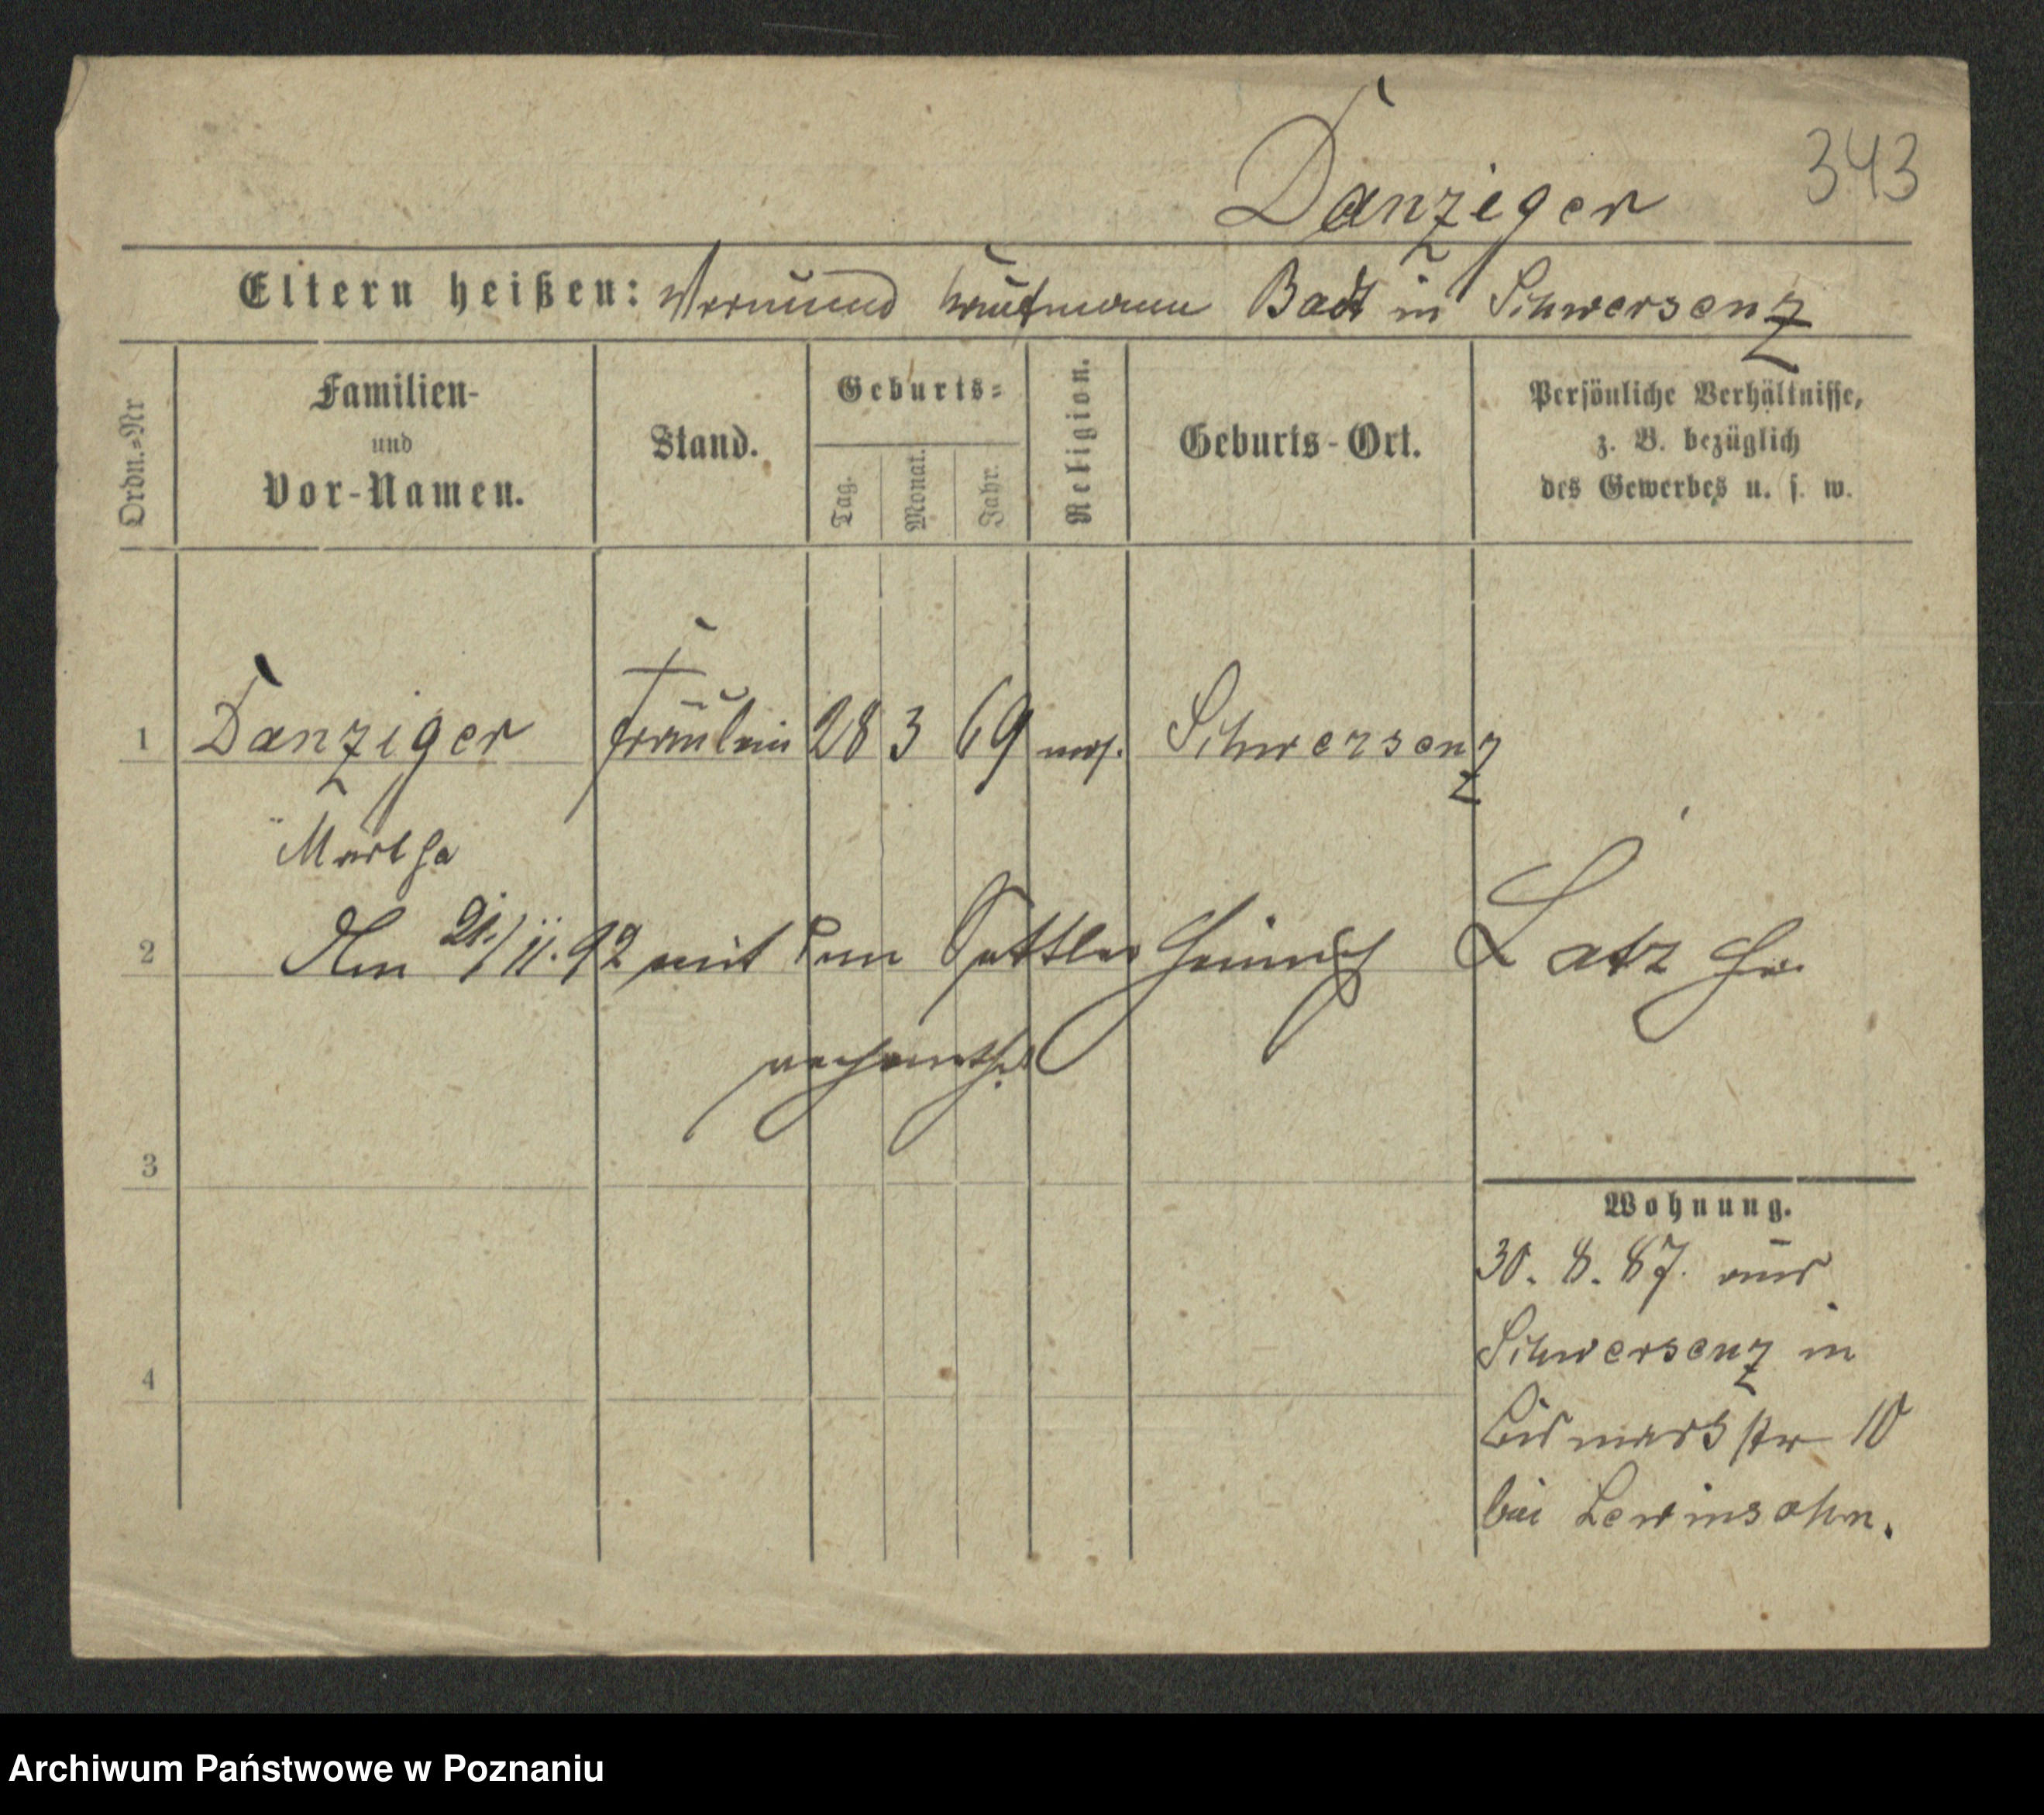 343
Danziger
Eltern heißen: Vormund Kaufmann Badt in Schwersenz
Ordn.=Nr
Familien-
und
Vor-Namen.
Stand.
Geburts=
Tag.
Monat.
Jahr.
Religion.
Geburts-Ort.
Persönliche Verhältnisse,
z. B. bezüglich
des Gewerbes u. s. w.
1 Danziger Fräulein 28 3 69 mos. Schwersenz
Martha
2 Am 21/11.92 mit dem Sattler Heinrich Latz hier
verheirathet
3
4
Wohnung.
30. 8. 87. aus
Schwersenz in
Bismarkstr 10
bei Lewinsohn.
Archiwum Państwowe w Poznaniu